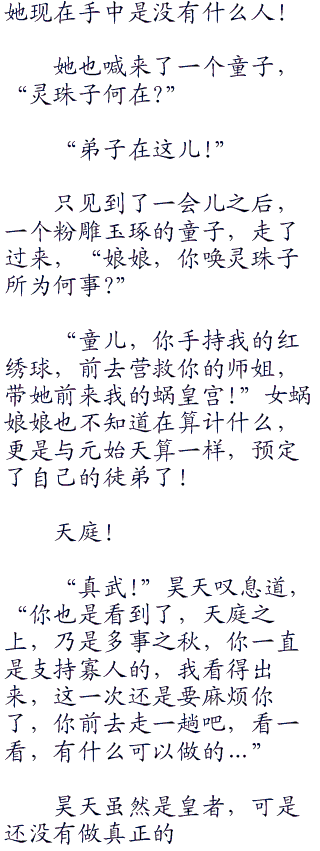 她现在手中是没有什么人！
她也喊来了一个童子，
“灵珠子何在?”
“弟子在这儿!”
只见到了一会儿之后，
一个粉雕玉琢的童子，走了
过来，“娘娘，你唤灵珠子
所为何事?”
“童儿，你手持我的红
绣球，前去营救你的师姐，
带她前来我的蜗皇宫!”女蜗
娘娘也不知道在算计什么，
更是与元始天算一样，预定
了自己的徒弟了！
天庭！
“真武!”昊天叹息道，
“你也是看到了，天庭之
上，乃是多事之秋，你一直
是支持寡人的，我看得出
来，这一次还是要麻烦你
了，你前去走一趟吧，看一
看，有什么可以做的…”
昊天虽然是皇者，可是
还没有做真正的